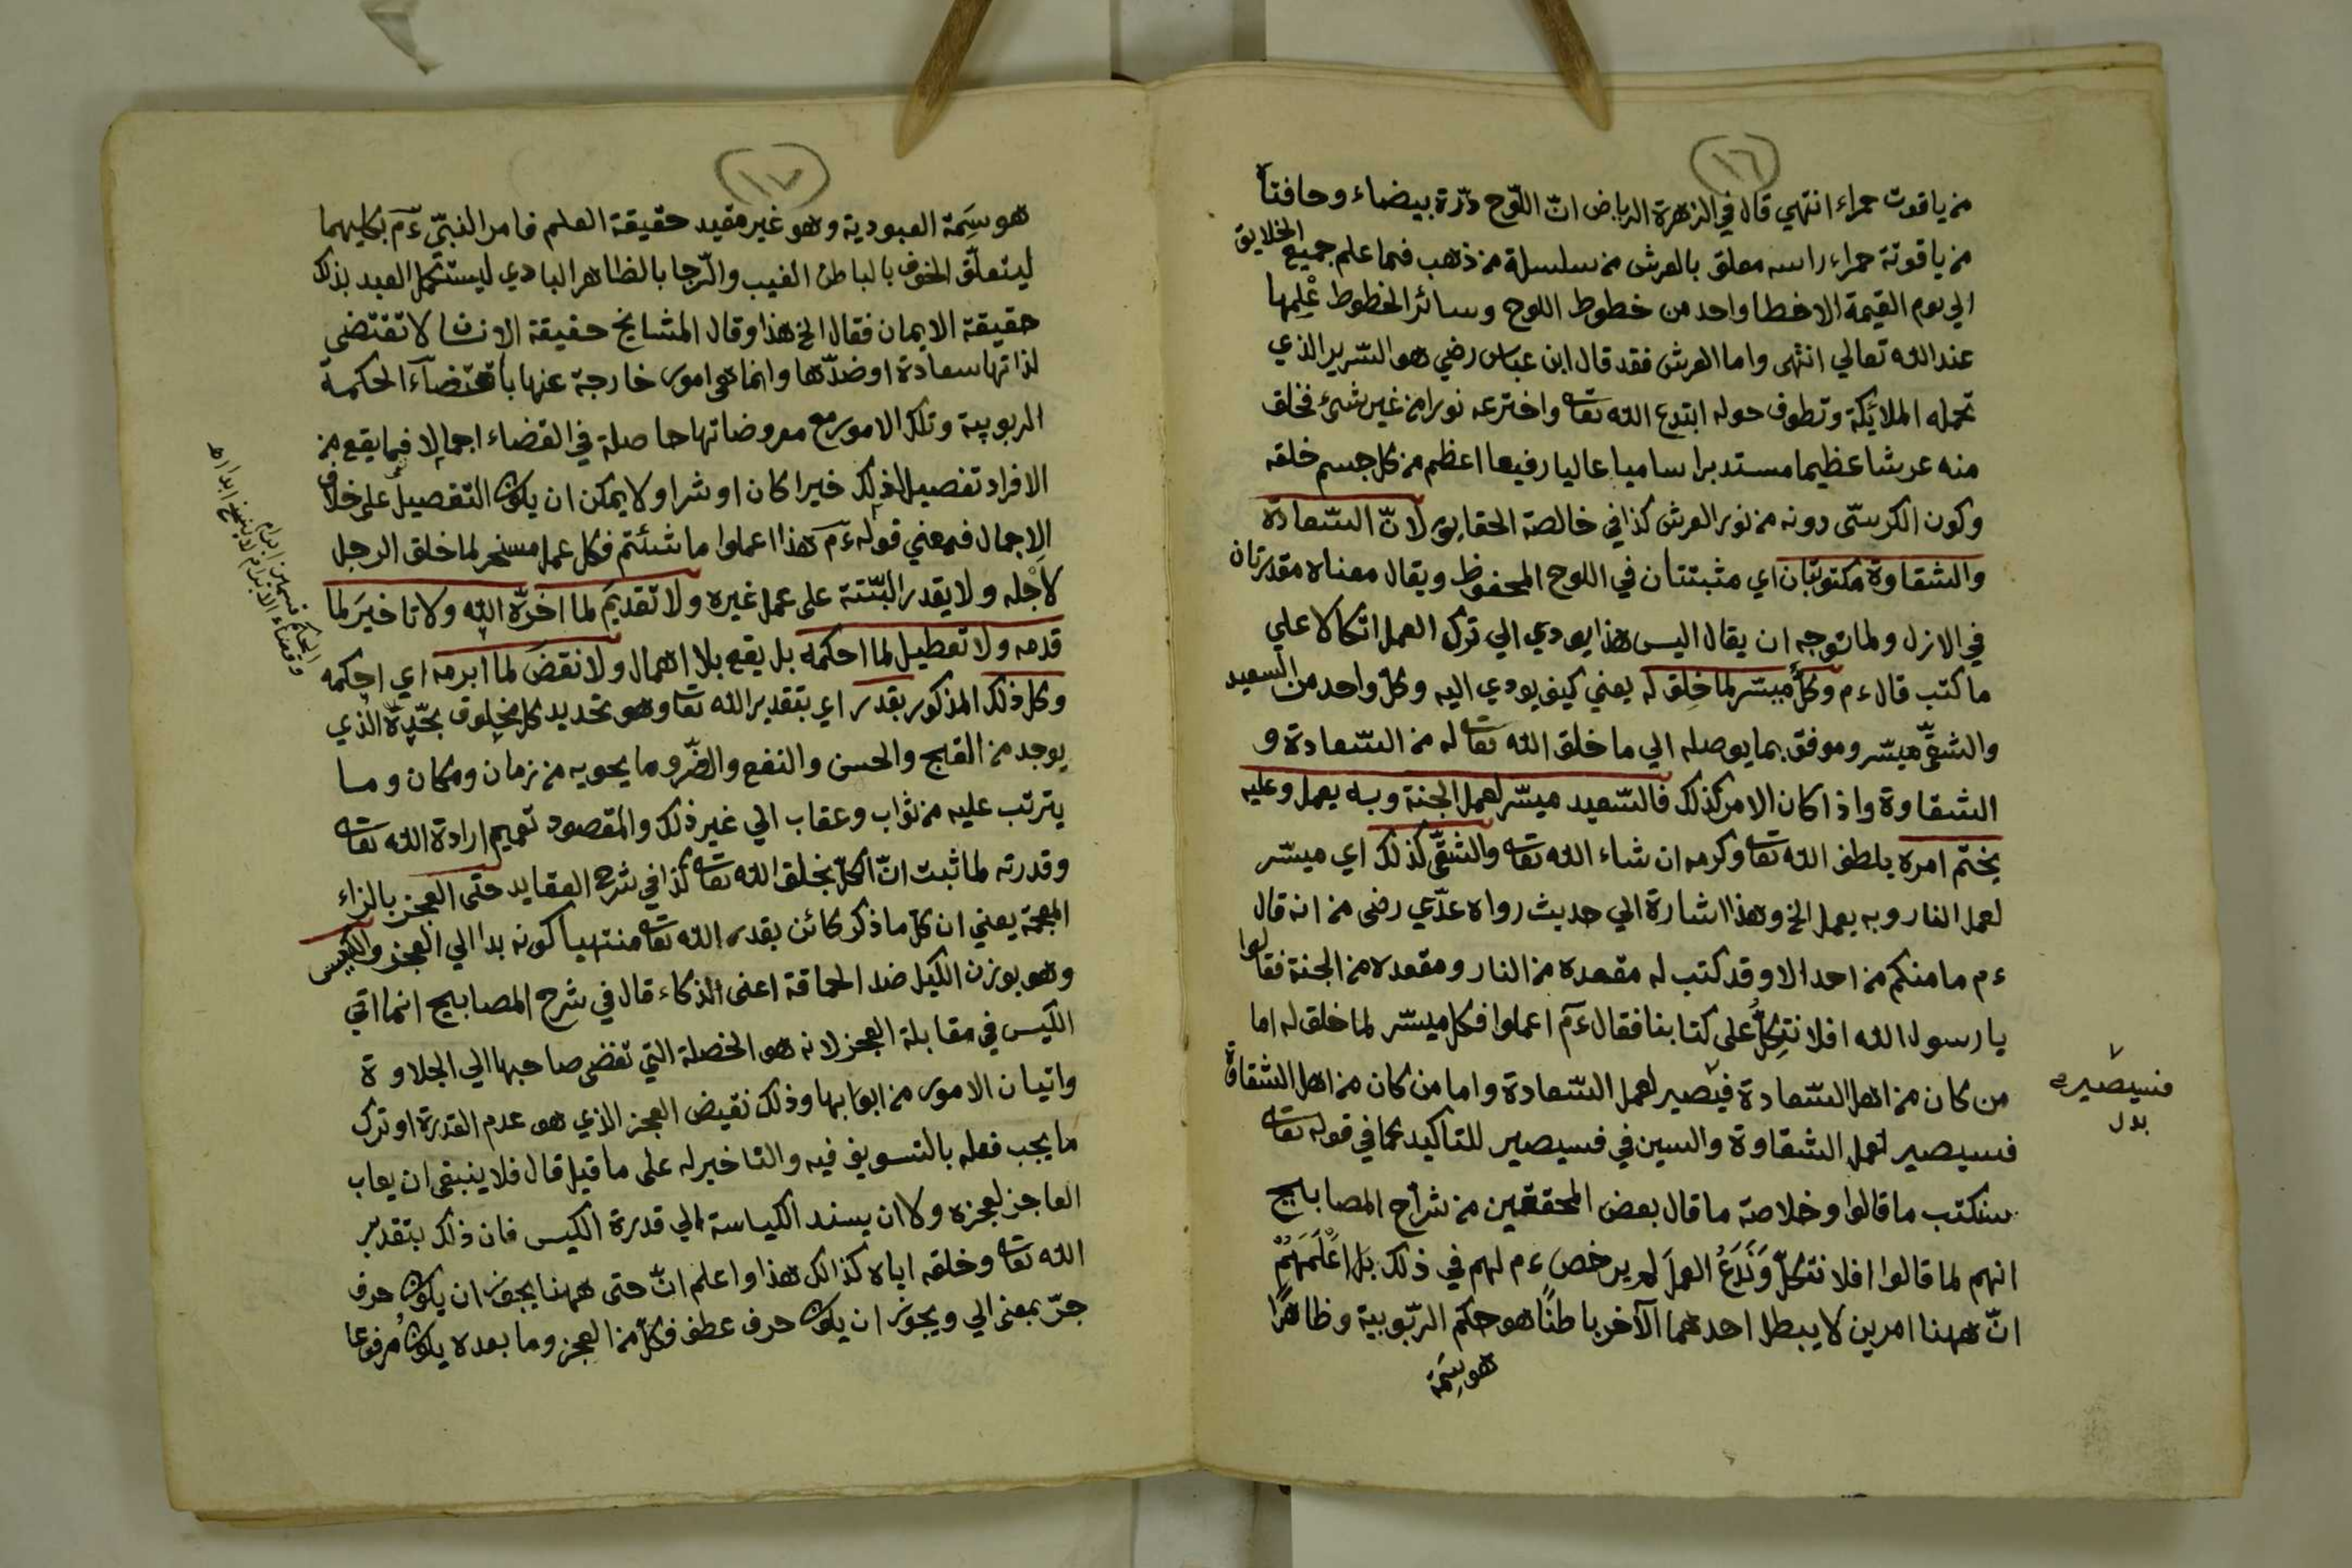 ١٦
من ياقوت حمراء انتهي قال في الزهرة الرياض انّ اللّوح درّة بيضاء وحافتاه
من ياقوتة حمراء راسه معلق بالعرش من سلسلة من ذهب فما علم جميع الخلايق
الي يوم القيمة الا خطا واحد من خطوط اللوح وسائر الخطوط عْلِمها
عند الله تعالي انتهى واما العرش فقد قال ابن عباس رضي هو السّرير الذي
تحمله الملائكة وتطوف حوله ابتدع الله تعا واخترعه نورا من غير شئ فخلق
منه عرشا عظيما مستديرا ساميا عاليا رفيعا اعظم من كل جسم خلقه
وكون الكرسّى دونه من نور العرش كذا في خالصة الحقايق لانّ السّعادة
والشقاوة مكتوبتان اي مثبتتان في اللوح المحفوظ ويقال معناه مقدرتان
في الازل ولما توجه ان يقال اليس هذا يودي الي ترك العمل اتكالا علي
ما كتب قال ءم وكلٌّ ميسّر لما خلِق له يعني كيف يودي اليه وكل واحد من السعيد
والشقّى ميسّر وموفق بما يوصله الي ما خلق الله تعا له من السّعادة و
الشقاوة واذا كان الامر كذلك فالسّعيد ميسّر لعمل الجنة وبه يعمل وعليه
يختم امره بلطف الله تعا وكرمه ان شاء الله تعا والشقّى كذلك اي ميسّر
لعمل النار وبه يعمل الخ وهذا اشارة الي حديث رواه عدّي رضى من انه قال
ءم ما منكم من احد الا وقد كتب له مقعده من النار ومقعده من الجنة فقالوا
يا رسول الله افلا نتكلُّ على كتابنا فقال ءم اعملوا فكل ميسّر لما خلق له اما
من كان من اهل السّعادة فيصير لعمل السّعادة واما من كان من اهل الشقاوة
فسيصير لعمل الشقاوة والسين في فسيصير للتاكيد كما في قوله تعا
سنكتب ما قالوا وخلاصة ما قال بعض المحققين من شرّاح المصابيح
انهم لما قالوا افلا نتكلّ وَنَدَعُ العملَ لم يرخص ءم لهم في ذلك بل اعْلَمَهُمْ
انّ ههنا امرين لا يبطل احدهما الآخر باطنًا هو حكم الرّبوبية وظاهرًا
هو سِمَة
فسيصير
بدل
١٧
هو سِمَة العبودية وهو غير مقيد حقيقة العلم فامر النبّى ءم بكليهما
ليتعلّق الخوف بالباطن الغيب والرّجا بالظاهر البادي ليستكمل العبد بذلك
حقيقة الايمان فقال الخ هذا وقال المشايخ حقيقة الانسان لا تقتضى
لذاتها سعادة او ضدّها وانما هى امور خارجة عنها باقتضآء الحكمة
الربوبية وتلك الامور مع معروضاتها حاصلة في القضاء اجمالا فما يقع من
الافراد تفصيل لذلك خيرا كان او شرا ولا يمكن ان يكون التفصيل على خلاف
الاجمال فمعني قوله ءم هذا اعملوا ما شئتم فكل عمل مسخر لما خلق الرجل
لأجْله ولا يقدر البتّتة على عمل غيره ولا تقديمَ لما اخرّه الله ولا تاخيرَ لما
قدمه ولا تعطيل لما احكمه بل يقع بلا اهمال ولا نقضَ لما ابرمه اي احكمه
وكل ذلك المذكور بقدر اي بتقدير الله تعا وهو تحديد كل مخلوق بحدّه الذي
يوجد من القبح والحسن والنفع والضّر وما يحويه من زمان ومكان وما
يترتب عليه من ثواب وعقاب الي غير ذلك والمقصود تعميم ارادة الله تعا
وقدرته لما ثبت انّ الكلّ بخلق الله تعا كذا في شرح العقايد حتى العجز بالزاء
المعجمة يعني ان كل ما ذكر كائن بقدر الله تعا منتهيا كونه بدا الي العجز والكيس
وهو بوزن الكيل ضد الحماقة اعنى الذكاء قال في شرح المصابيح انما اتي
الكيس في مقابلة العجز لانه هو الخصلة التي تفضى صاحبها الي الجلاوة
واتيان الامور من ابوابها وذلك نقيض العجز الذي هو عدم القدرة او ترك
ما يجب فعله بالتسويف فيه والتاخير له على ما قيل قال فلا ينبغى ان يعاب
العاجز لعجزه ولا ان يسند الكياسة الي قدرة الكيس فان ذلك بتقدير
الله تعا وخلقه اياه كذالك هذا واعلم انّ حتى ههنا يجوز ان يكون حرف
جرّ بمعنى الي ويجوز ان يكون حرف عطف فكلّ من العجز وما بعده يكون مرفوعا